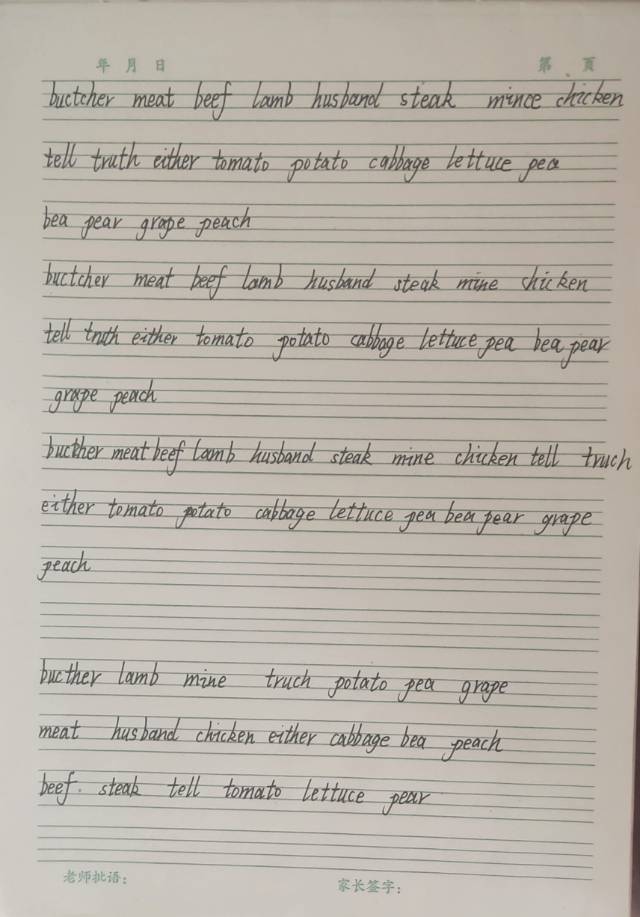 年 月 日 第 页
buctcher meat beef lamb husband steak mince chicken
tell truth either tomato potato cabbage lettuce pea
bea pear grape peach
buctcher meat beef lamb husband steak mine chicken
tell truth either tomato potato cabbage lettuce pea bea pear
grape peach
bucther meat beef lamb husband steak mine chicken tell truch
either tomato potato cabbage lettuce pea bea pear grape
peach
bucther lamb mine truch potato pea grape
meat husband chicken either cabbage bea peach
beef. steak tell tomato lettuce pear
老师批语: 家长签字: